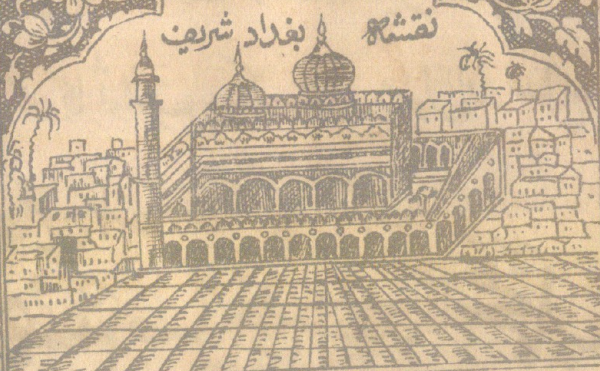 نقشہ بغداد شریف